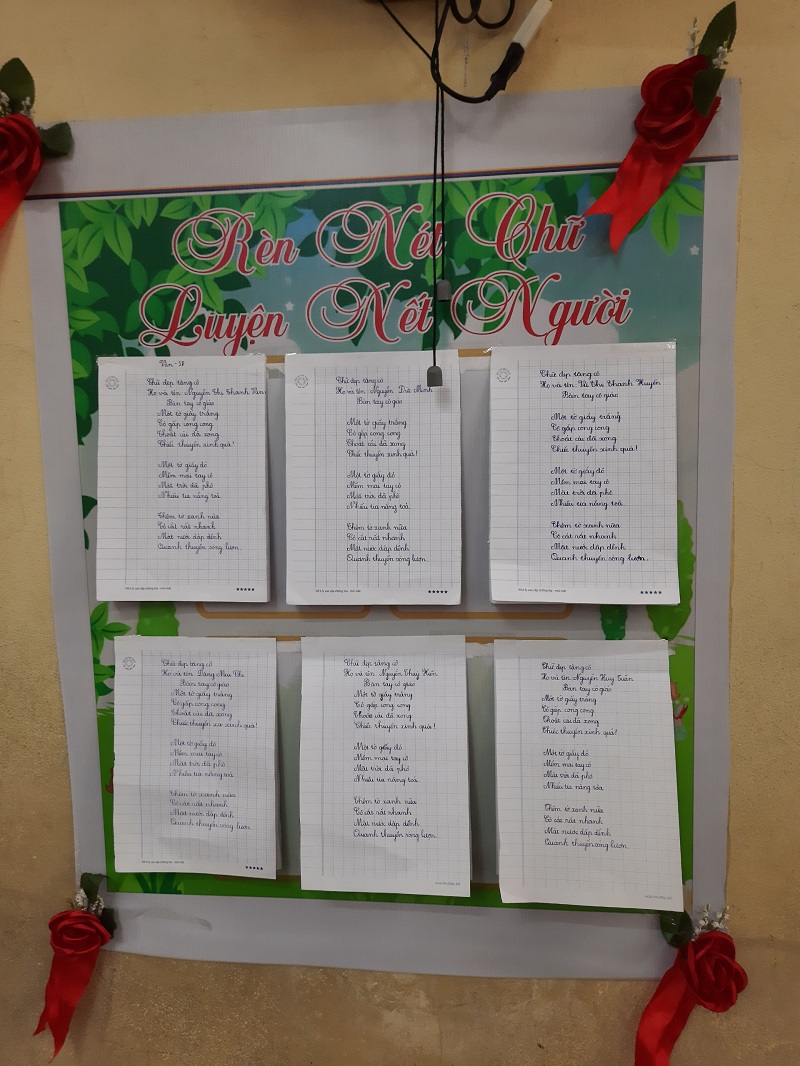 Rèn Nét Chữ
Luyện Nết Người
Vân - 5B
Chữ đẹp tặng cô
Họ và tên: Nguyễn Thị Thanh Vân
Bàn tay cô giáo
Một tờ giấy trắng
Cô gấp cong cong
Thoắt cái đã xong
Chiếc thuyền xinh quá!
Một tờ giấy đỏ
Mềm mại tay cô
Mặt trời đã phô
Nhiều tia nắng toả.
Thêm tờ xanh nữa
Cô cắt rất nhanh
Mặt nước dập dềnh
Quanh thuyền sóng lượn.
Chữ đẹp tặng cô
Họ và tên: Nguyễn Trà Minh
Bàn tay cô giáo
Một tờ giấy trắng
Cô gấp cong cong
Thoắt cái đã xong
Chiếc thuyền xinh quá!
Một tờ giấy đỏ
Mềm mại tay cô
Mặt trời đã phô
Nhiều tia nắng toả.
Thêm tờ xanh nữa
Cô cắt rất nhanh
Mặt nước dập dềnh
Quanh thuyền sóng lượn.
Chữ đẹp tặng cô
Họ và tên: Thị Thanh Huyền
Bàn tay cô giáo
Một tờ giấy trắng
Cô gấp cong cong
Thoắt cái đã xong
Chiếc thuyền xinh quá!
Một tờ giấy đỏ
Mềm mại tay cô
Mặt trời đã phô
Nhiều tia nắng toả.
Thêm tờ xanh nữa
Cô cắt rất nhanh
Mặt nước dập dềnh
Quanh thuyền sóng lượn.
Chữ đẹp tặng cô
Họ và tên: Đặng Mai Chi
Bàn tay cô giáo
Một tờ giấy trắng
Cô gấp cong cong
Thoắt cái đã xong
Chiếc thuyền xinh quá!
Một tờ giấy đỏ
Mềm mại tay cô
Mặt trời đã phô
Nhiều tia nắng toả.
Thêm tờ xanh nữa
Cô cắt rất nhanh
Mặt nước dập dềnh
Quanh thuyền sóng lượn.
Chữ đẹp tặng cô
Họ và tên: Nguyễn Thuý Hiền
Bàn tay cô giáo
Một tờ giấy trắng
Cô gấp cong cong
Thoắt cái đã xong
Chiếc thuyền xinh quá!
Một tờ giấy đỏ
Mềm mại tay cô
Mặt trời đã phô
Nhiều tia nắng toả.
Thêm tờ xanh nữa
Cô cắt rất nhanh
Mặt nước dập dềnh
Quanh thuyền sóng lượn.
Chữ đẹp tặng cô
Họ và tên: Nguyễn Huy Tuấn
Bàn tay cô giáo
Một tờ giấy trắng
Cô gấp cong cong
Thoắt cái đã xong
Chiếc thuyền xinh quá!
Một tờ giấy đỏ
Mềm mại tay cô
Mặt trời đã phô
Nhiều tia nắng
Thêm tờ xanh nữa
Cô cắt rất nhanh
Mặt nước dập dềnh
Quanh thuyền sóng lượn.